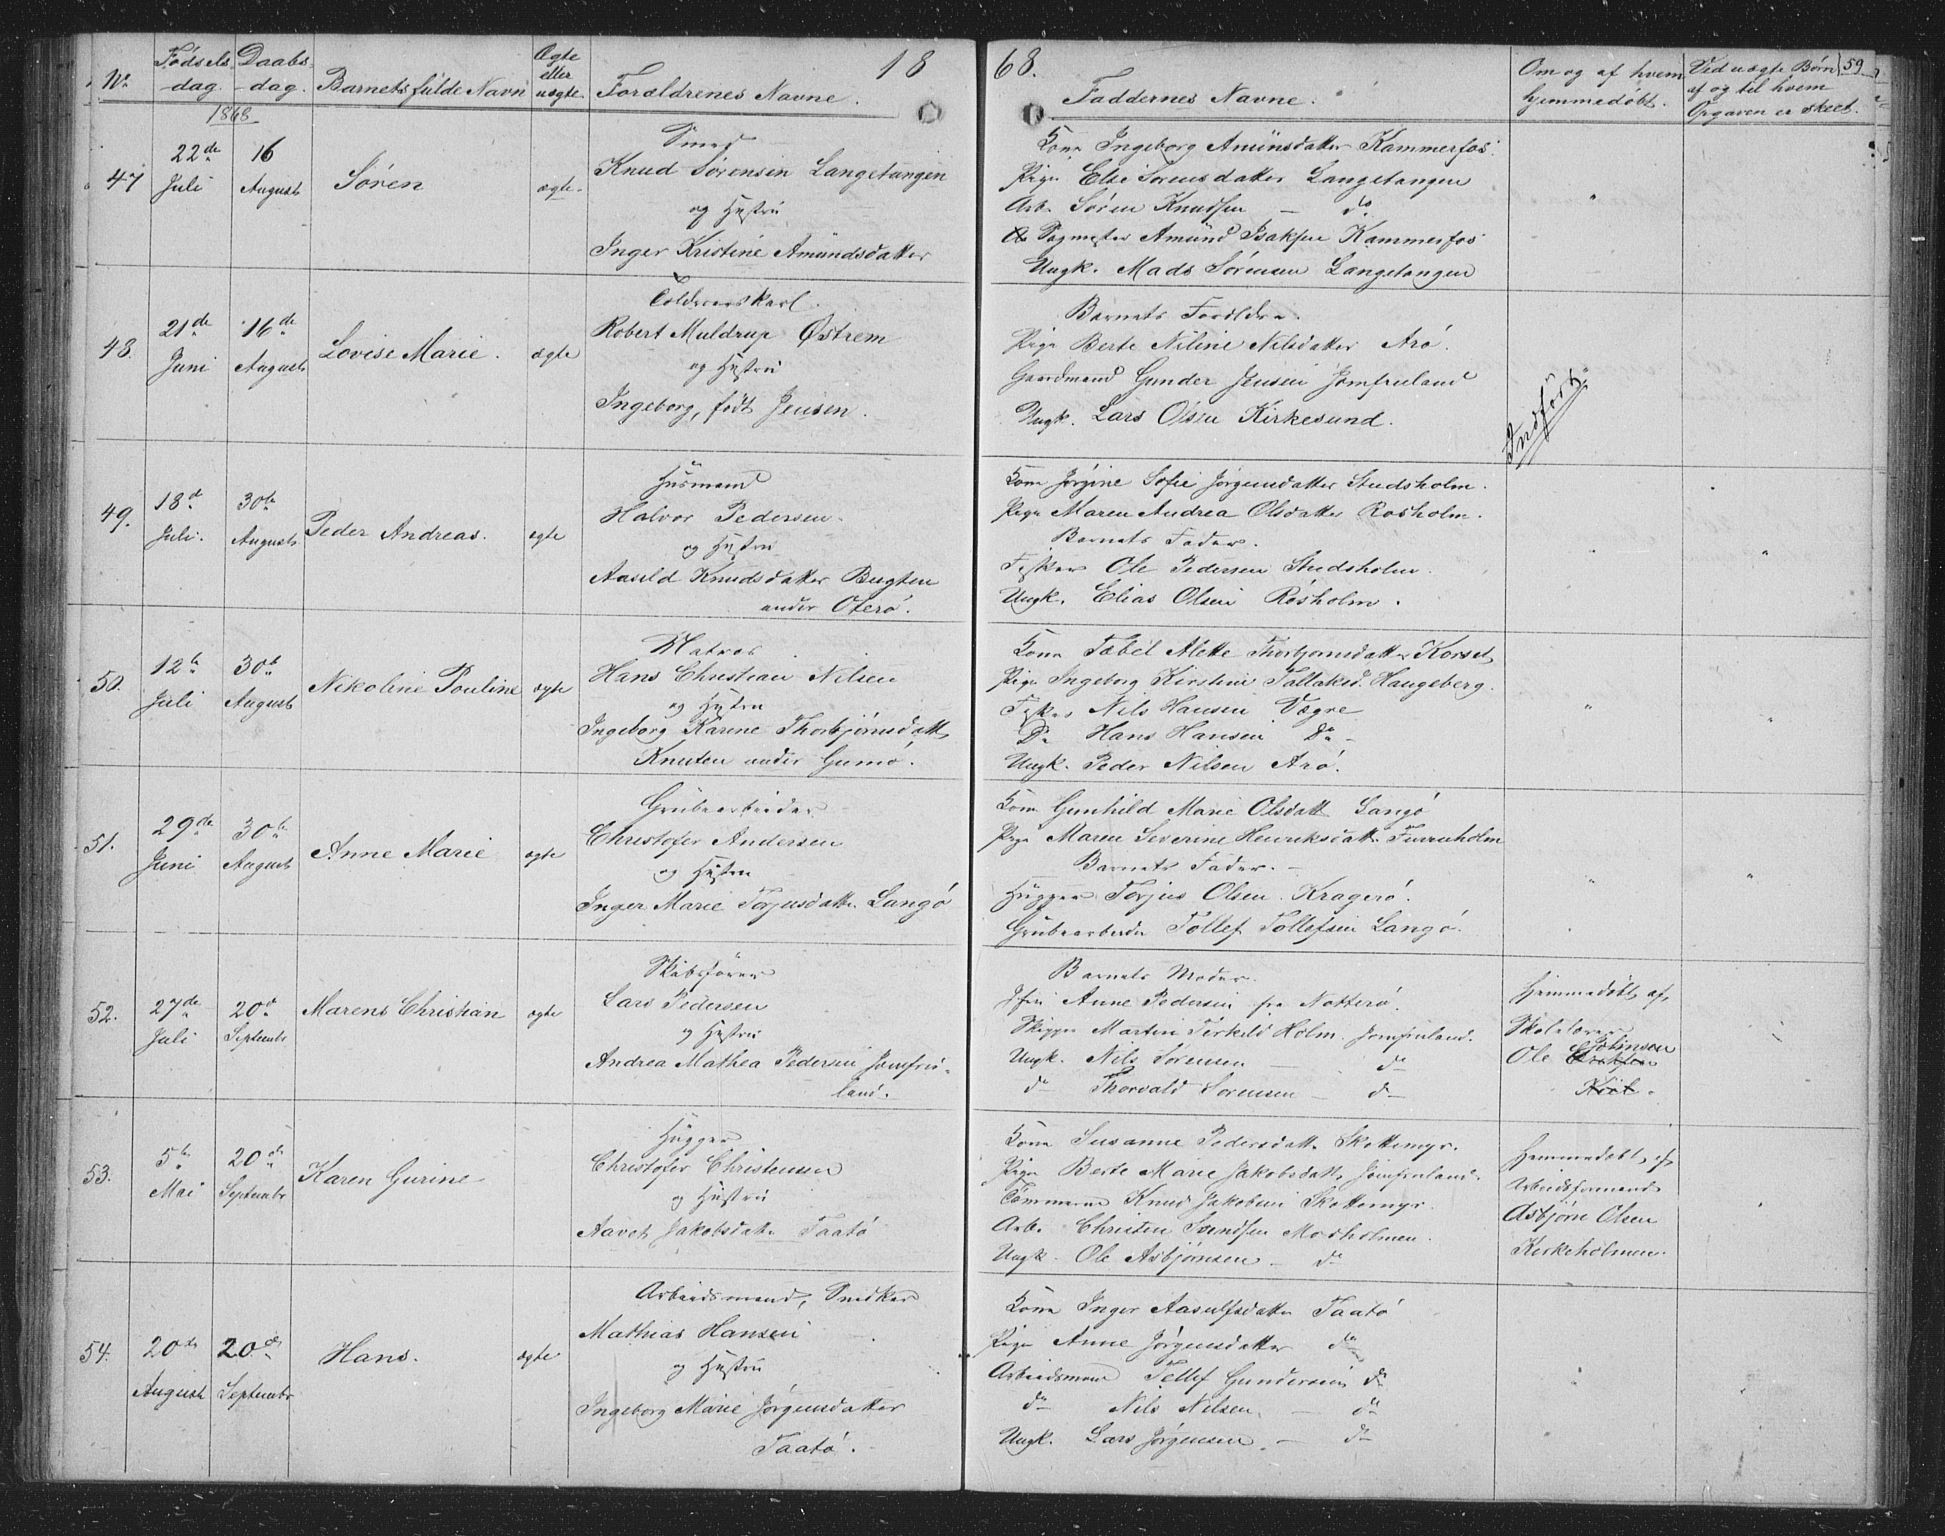 No
Fødsels-
dag.
Daabs-
dag.
Barnets fulde Navn
Ægte
eller
uægte.
Forældrenes Navne.
18
68.
Faddernes Navne.
Om og af hvem
hjemmedøbt.
Ved uægte Børn
af og til hvem
Opgaven er skeet.
59
1868
47
22de
Juli
16
August
Søren
ægte.
Smed
Knud Sørensen Langetangen
og Hustru
Inger Kristine Amundsdatter
Kone Ingeborg Amundsdatter Kammerfos.
Pige Else Sørensdatter Langetangen
Arb. Søren Knudsen — do
Sagmester Amund Isaksen Kammerfos
Ungk. Mads Sørensen Langetangen
48.
21de
Juni
16de
August
Lovise Marie.
ægte
Robert Muldrup Østrem
og Hustru
Ingeborg, født Jensen.
Barnets Forældre.
Pige Berte Niline Nilsdatter Arø.
Gaardmand Gunder Jensen Jomfruland
Ungk. Lars Olsen Kirkesund.
Indført.
49.
18d
Juli.
30te
August
Peder Andreas.
ægte
Husmand
Halvor Pedersen.
og Hustru
Aasild Knudsdatter Bugten
under Oterø.
Kone Jørgine Sofie Jørgensdatter Studsholm.
Pige Maren Andrea Olsdatter Rosholm.
Barnets Fader.
Fisker Ole Pedersen Studsholm.
Ungk. Elias Olsen Røsholm.
50.
12te
Juli
30te
August
Nikoline Pouline
ægte
Matros
Hans Christian Nilsen
og Hustru
Ingeborg Karine Thorbjørnsdatt.
Knuten under Gumø.
Kone Tabel Alette Thorbjørnsdatter Korset
Pige Ingeborg Kirstine Tallaksd. Haugeberg.
Fisker Nils Hansen Vægre
Do Hans Hansen Do -
Ungk. Peder Nilsen Arø.
51.
29de
Juni
30te
August
Anne Marie
ægte
Grubearbeider
Christofer Andersen
og Hustru
Inger Marie Torjusdatter Langø
Kone Gunhild Marie Olsdatt Langø
Pige Maren Severine Henriksdatt. Furuholm
Barnets Fader. -
Hugger Torjus Olsen. Kragerø.
Grubearbeider Tollef Tollefsen Langø.
52.
27de
Juli
20d
Septembr
Marens Christian
ægte
Skibsfører
Lars Pedersen
og Hustru
Andrea Mathea Pedersen Jomfru-
land.
Barnets Moder.
Jfru Anne Pedersen fra Nøtterø.
Skipper Martin Terkild Holm. Jomfruland.
Ungk. Nils Sørensen — do
do Thorvald Sørensen — do
Hjemmedøbt af
Skolelærer
Ole Jobinsen
53.
5te
Mai
20de
Septembr
Karen Gurine
Hugger
Christofer Christensen
og Hustru
Aavot Jakobsdatt. Taatø
Kone Susanne Pedersdatt. Skottemyr.
Pige Berte Marie Jakobsdatt. Jomfruland.
Tømmermd Knud Jakobsen Skottemyr.
Arb. Christen Svendsen Morholmen.
Ungk. Ole Asbjørnsen — do
Hjemmedøbt af
Arbeidsformand
Asbjørn Olsen
Kirkeholmen.
54.
20de
August
20de
Septembr
Hans.
ægte
Arbeidsmand, Snedker
Mathias Hansen
og Hustru
Ingeborg Marie Jørgensdatter
Taatø.
Kone Inger Aasulfsdatter Taatø
Pige Anne Jørgensdatter do
Arbeidsmand Tellef Gundersen do
do Nils Nilsen. — do
Ungk. Lars Jørgensen. — do